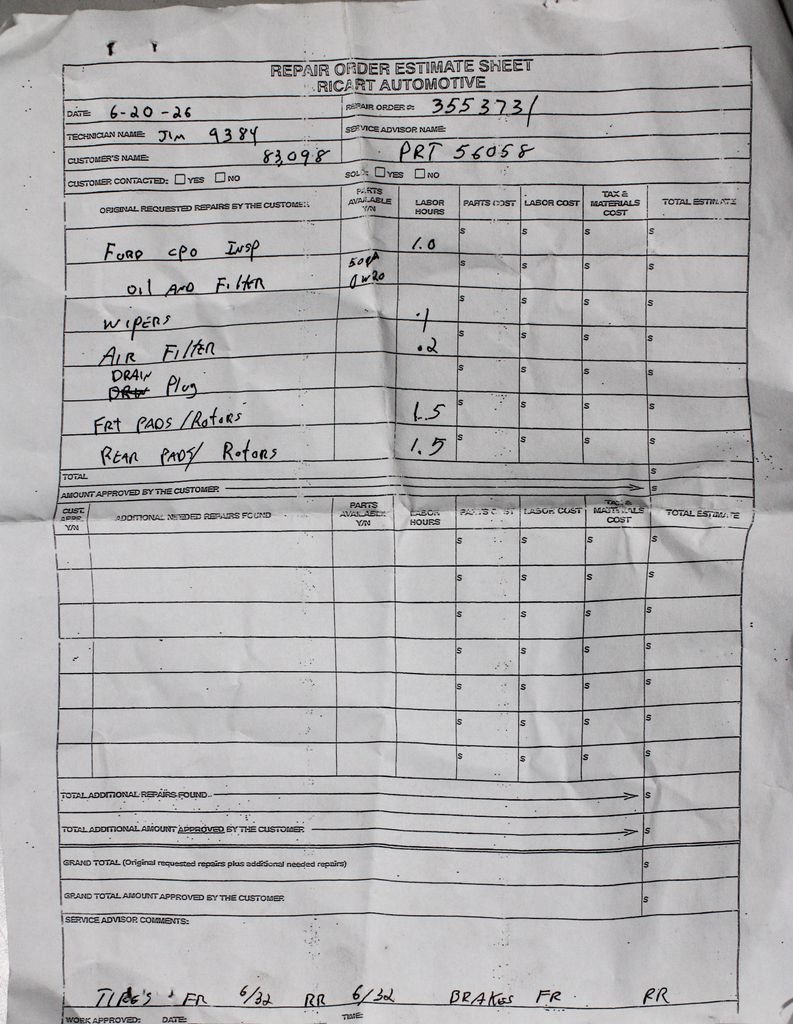 REPAIR ORDER ESTIMATE SHEET
RICART AUTOMOTIVE
DATE: 6-20-26 REPAIR ORDER #: 3553731
TECHNICIAN NAME: JIM 9384 SERVICE ADVISOR NAME:
CUSTOMER'S NAME: 83,098 PRT 56058
CUSTOMER CONTACTED: YES NO SOLD: YES NO
ORIGINAL REQUESTED REPAIRS BY THE CUSTOMER PARTS AVAILABLE Y/N LABOR HOURS PARTS COST LABOR COST TAX & MATERIALS COST TOTAL ESTIMATE
FORD CPO INSP 1.0 $ $ $ $
OIL AND FILTER 0W20 $ $ $ $
WIPERS .1 $ $ $ $
AIR FILTER .2 $ $ $ $
DRAIN Plug $ $ $ $
FRT PADS/Rotors 1.5 $ $ $ $
REAR PADS/ Rotors 1.5 $ $ $ $
TOTAL $
AMOUNT APPROVED BY THE CUSTOMER $
CUST. APPR. Y/N ADDITIONAL NEEDED REPAIRS FOUND PARTS AVAILABLE Y/N LABOR HOURS PARTS COST LABOR COST TAX & MATERIALS COST TOTAL ESTIMATE
$ $ $ $
$ $ $ $
$ $ $ $
$ $ $ $
$ $ $ $
$ $ $ $
$ $ $ $
TOTAL ADDITIONAL REPAIRS FOUND $
TOTAL ADDITIONAL AMOUNT APPROVED BY THE CUSTOMER $
GRAND TOTAL (Original requested repairs plus additional needed repairs) $
GRAND TOTAL AMOUNT APPROVED BY THE CUSTOMER $
SERVICE ADVISOR COMMENTS:
TIRE'S FR 6/32 RR 6/32 BRAKES FR RR
WORK APPROVED: DATE: TIME: